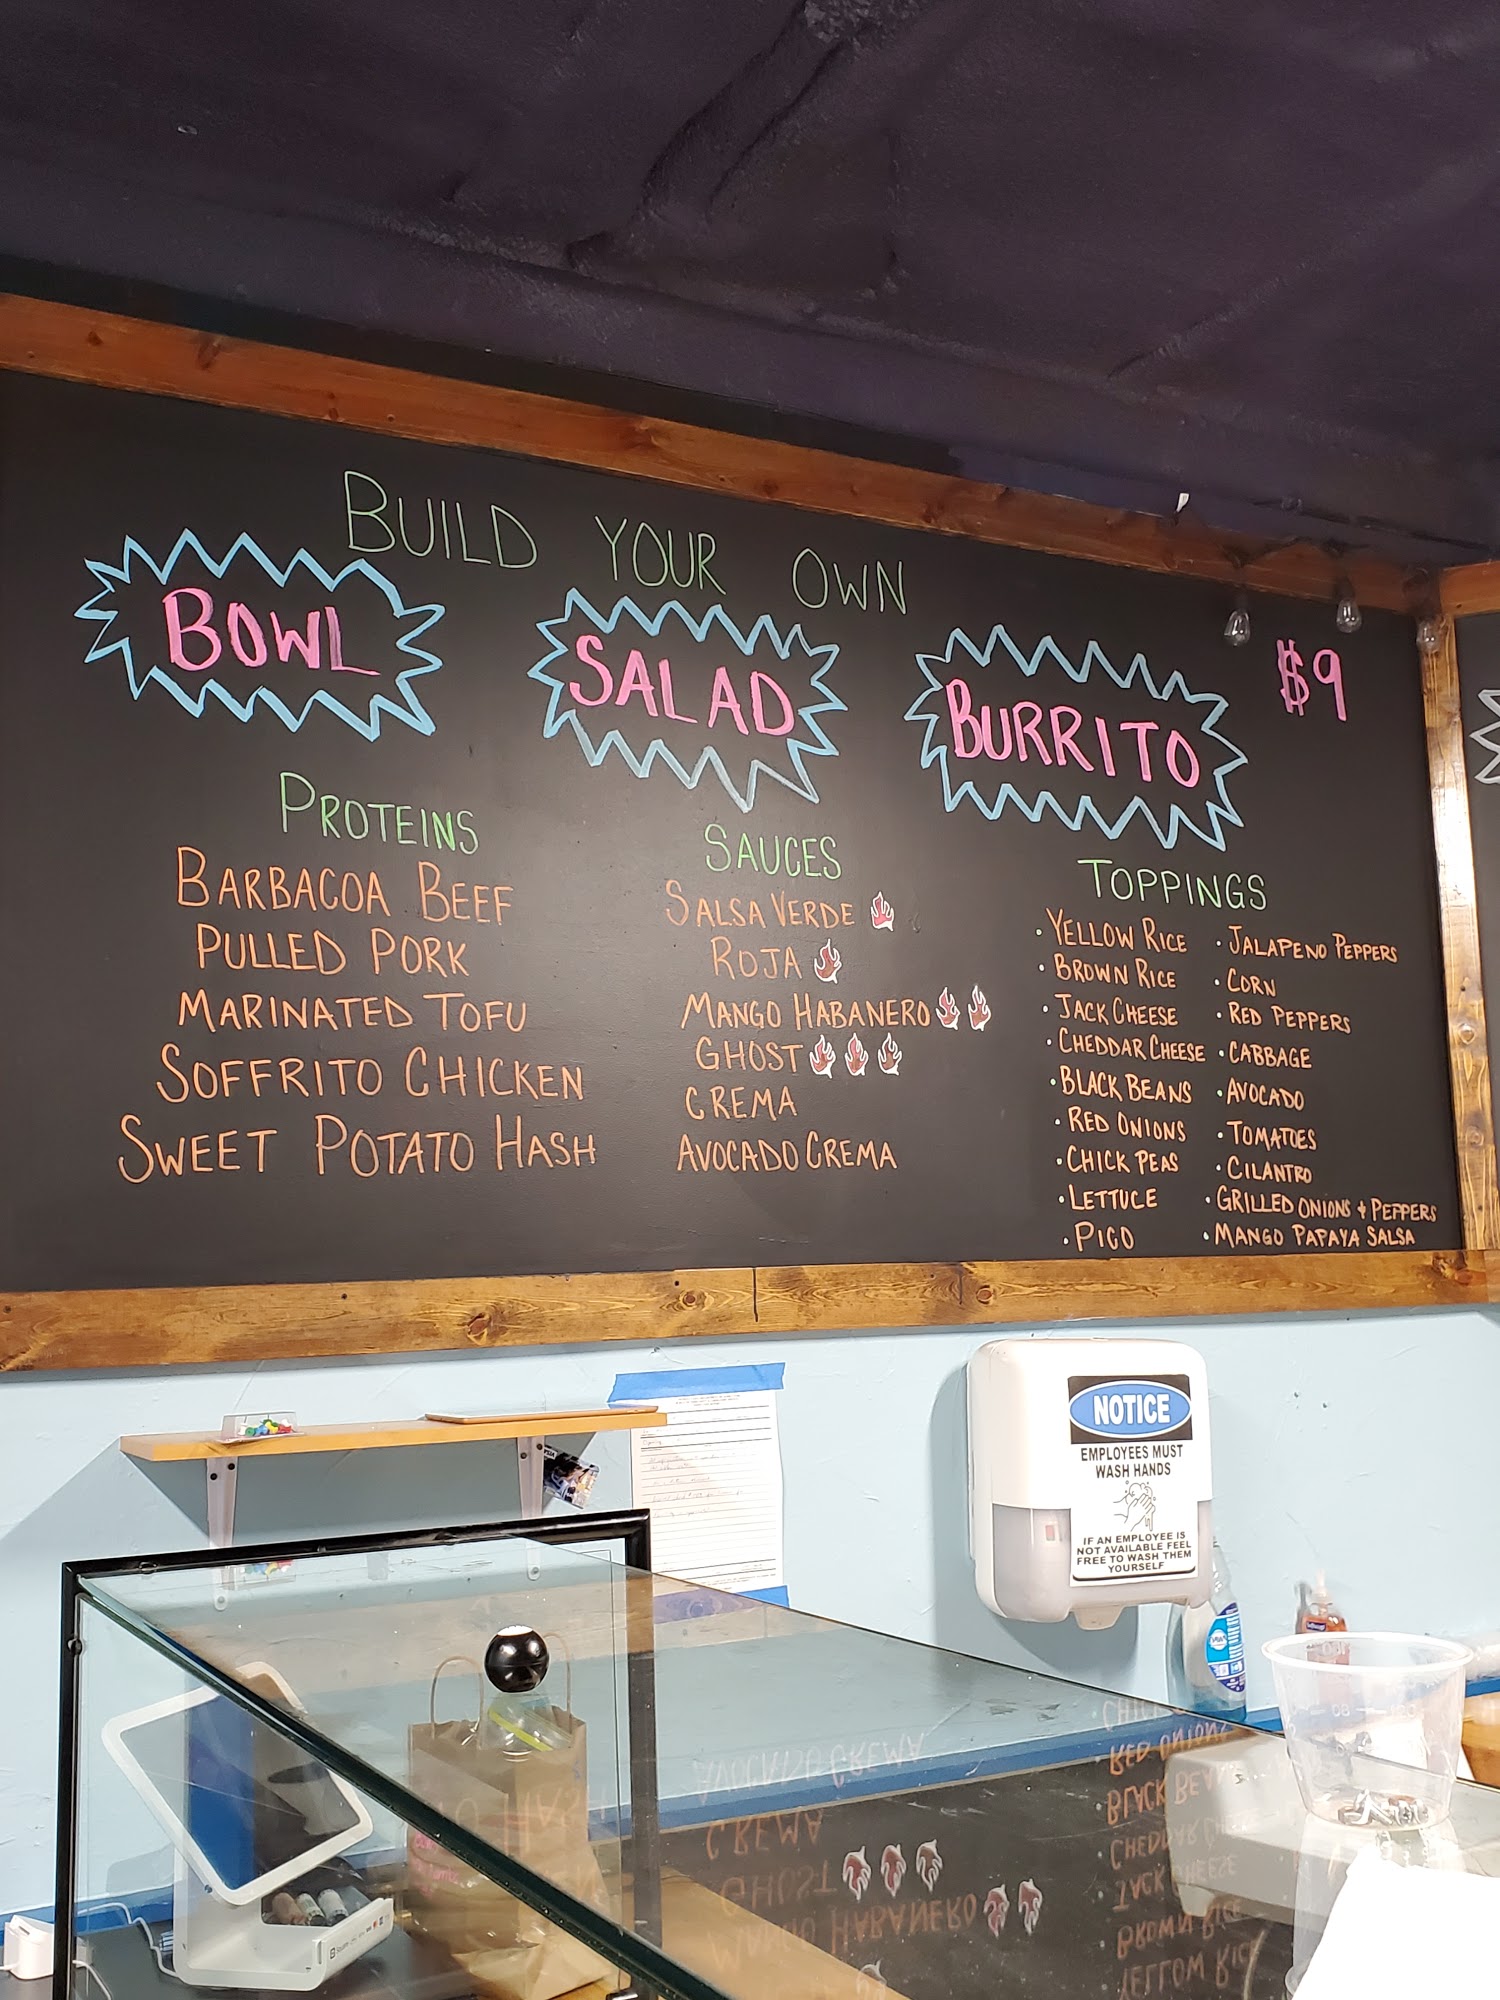 BUILD YOUR OWN
BOWL
SALAD
BURRITO
$9
PROTEINS
BARBACOA BEEF
PULLED PORK
MARINATED TOFU
SOFFRITO CHICKEN
SWEET POTATO HASH
SAUCES
SALSA VERDE
ROJA
MANGO HABANERO
GHOST
CREMA
AVOCADO CREMA
TOPPINGS
• YELLOW RICE
• BROWN RICE
• JACK CHEESE
• CHEDDAR CHEESE
• BLACK BEANS
• RED ONIONS
• CHICK PEAS
• LETTUCE
• PICO
• JALAPENO PEPPERS
• CORN
• RED PEPPERS
• CABBAGE
• AVOCADO
• TOMATOES
• CILANTRO
• GRILLED ONIONS + PEPPERS
• MANGO PAPAYA SALSA
NOTICE
EMPLOYEES MUST
WASH HANDS
IF AN EMPLOYEE IS
NOT AVAILABLE FEEL
FREE TO WASH THEM
YOURSELF